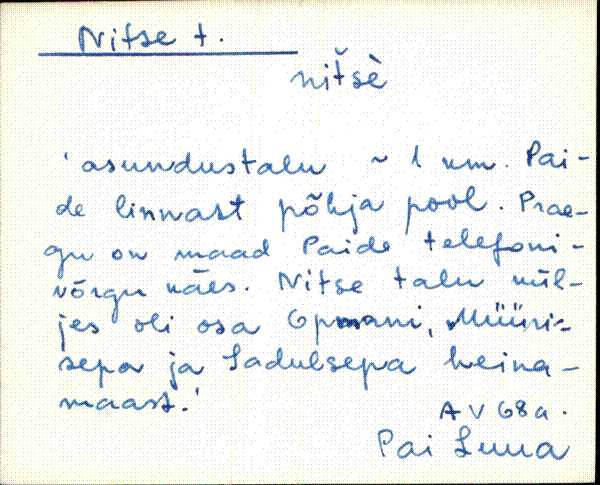 Nitse t.
nitšè
'asundustalu ~ 1 km. Pai-
de linnast põhja pool. Prae-
gu on maad Paide telefoni-
võrgu käes. Nitse talu kül-
jes oli osa Opmani, Müüri-
sepa ja Sadulsepa heina-
maast.'
AV 68a.
Pai